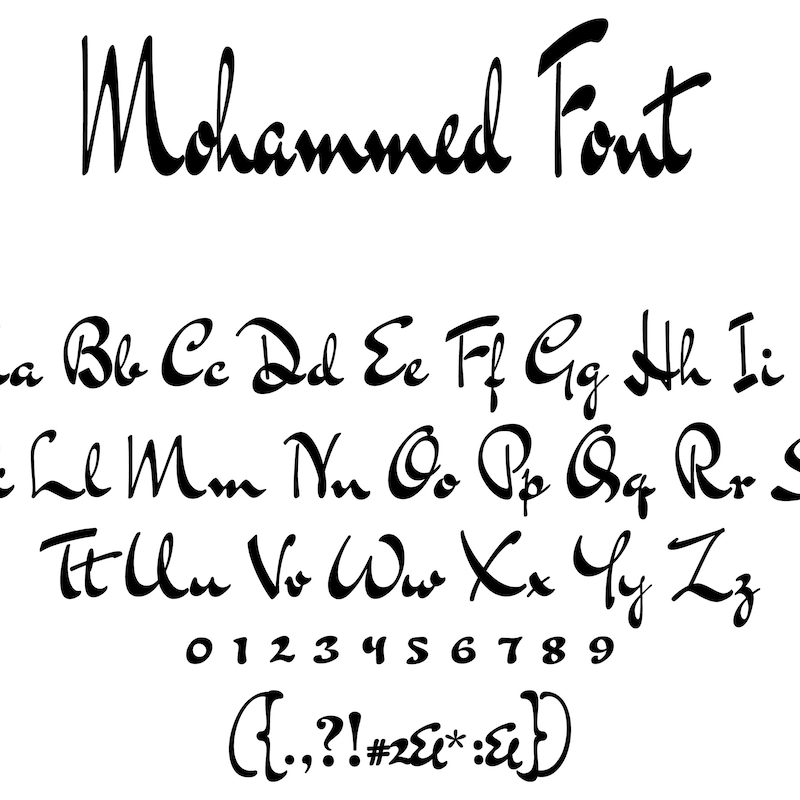 Mohammed Font
a Bb Cc Dd Ee Ff Gg Hh Ii
Ll Mm Nn Oo Pp Qq Rr S
Tt Uu Vv Ww Xx Yy Zz
0 1 2 3 4 5 6 7 8 9
({.,?!#2&*:&})